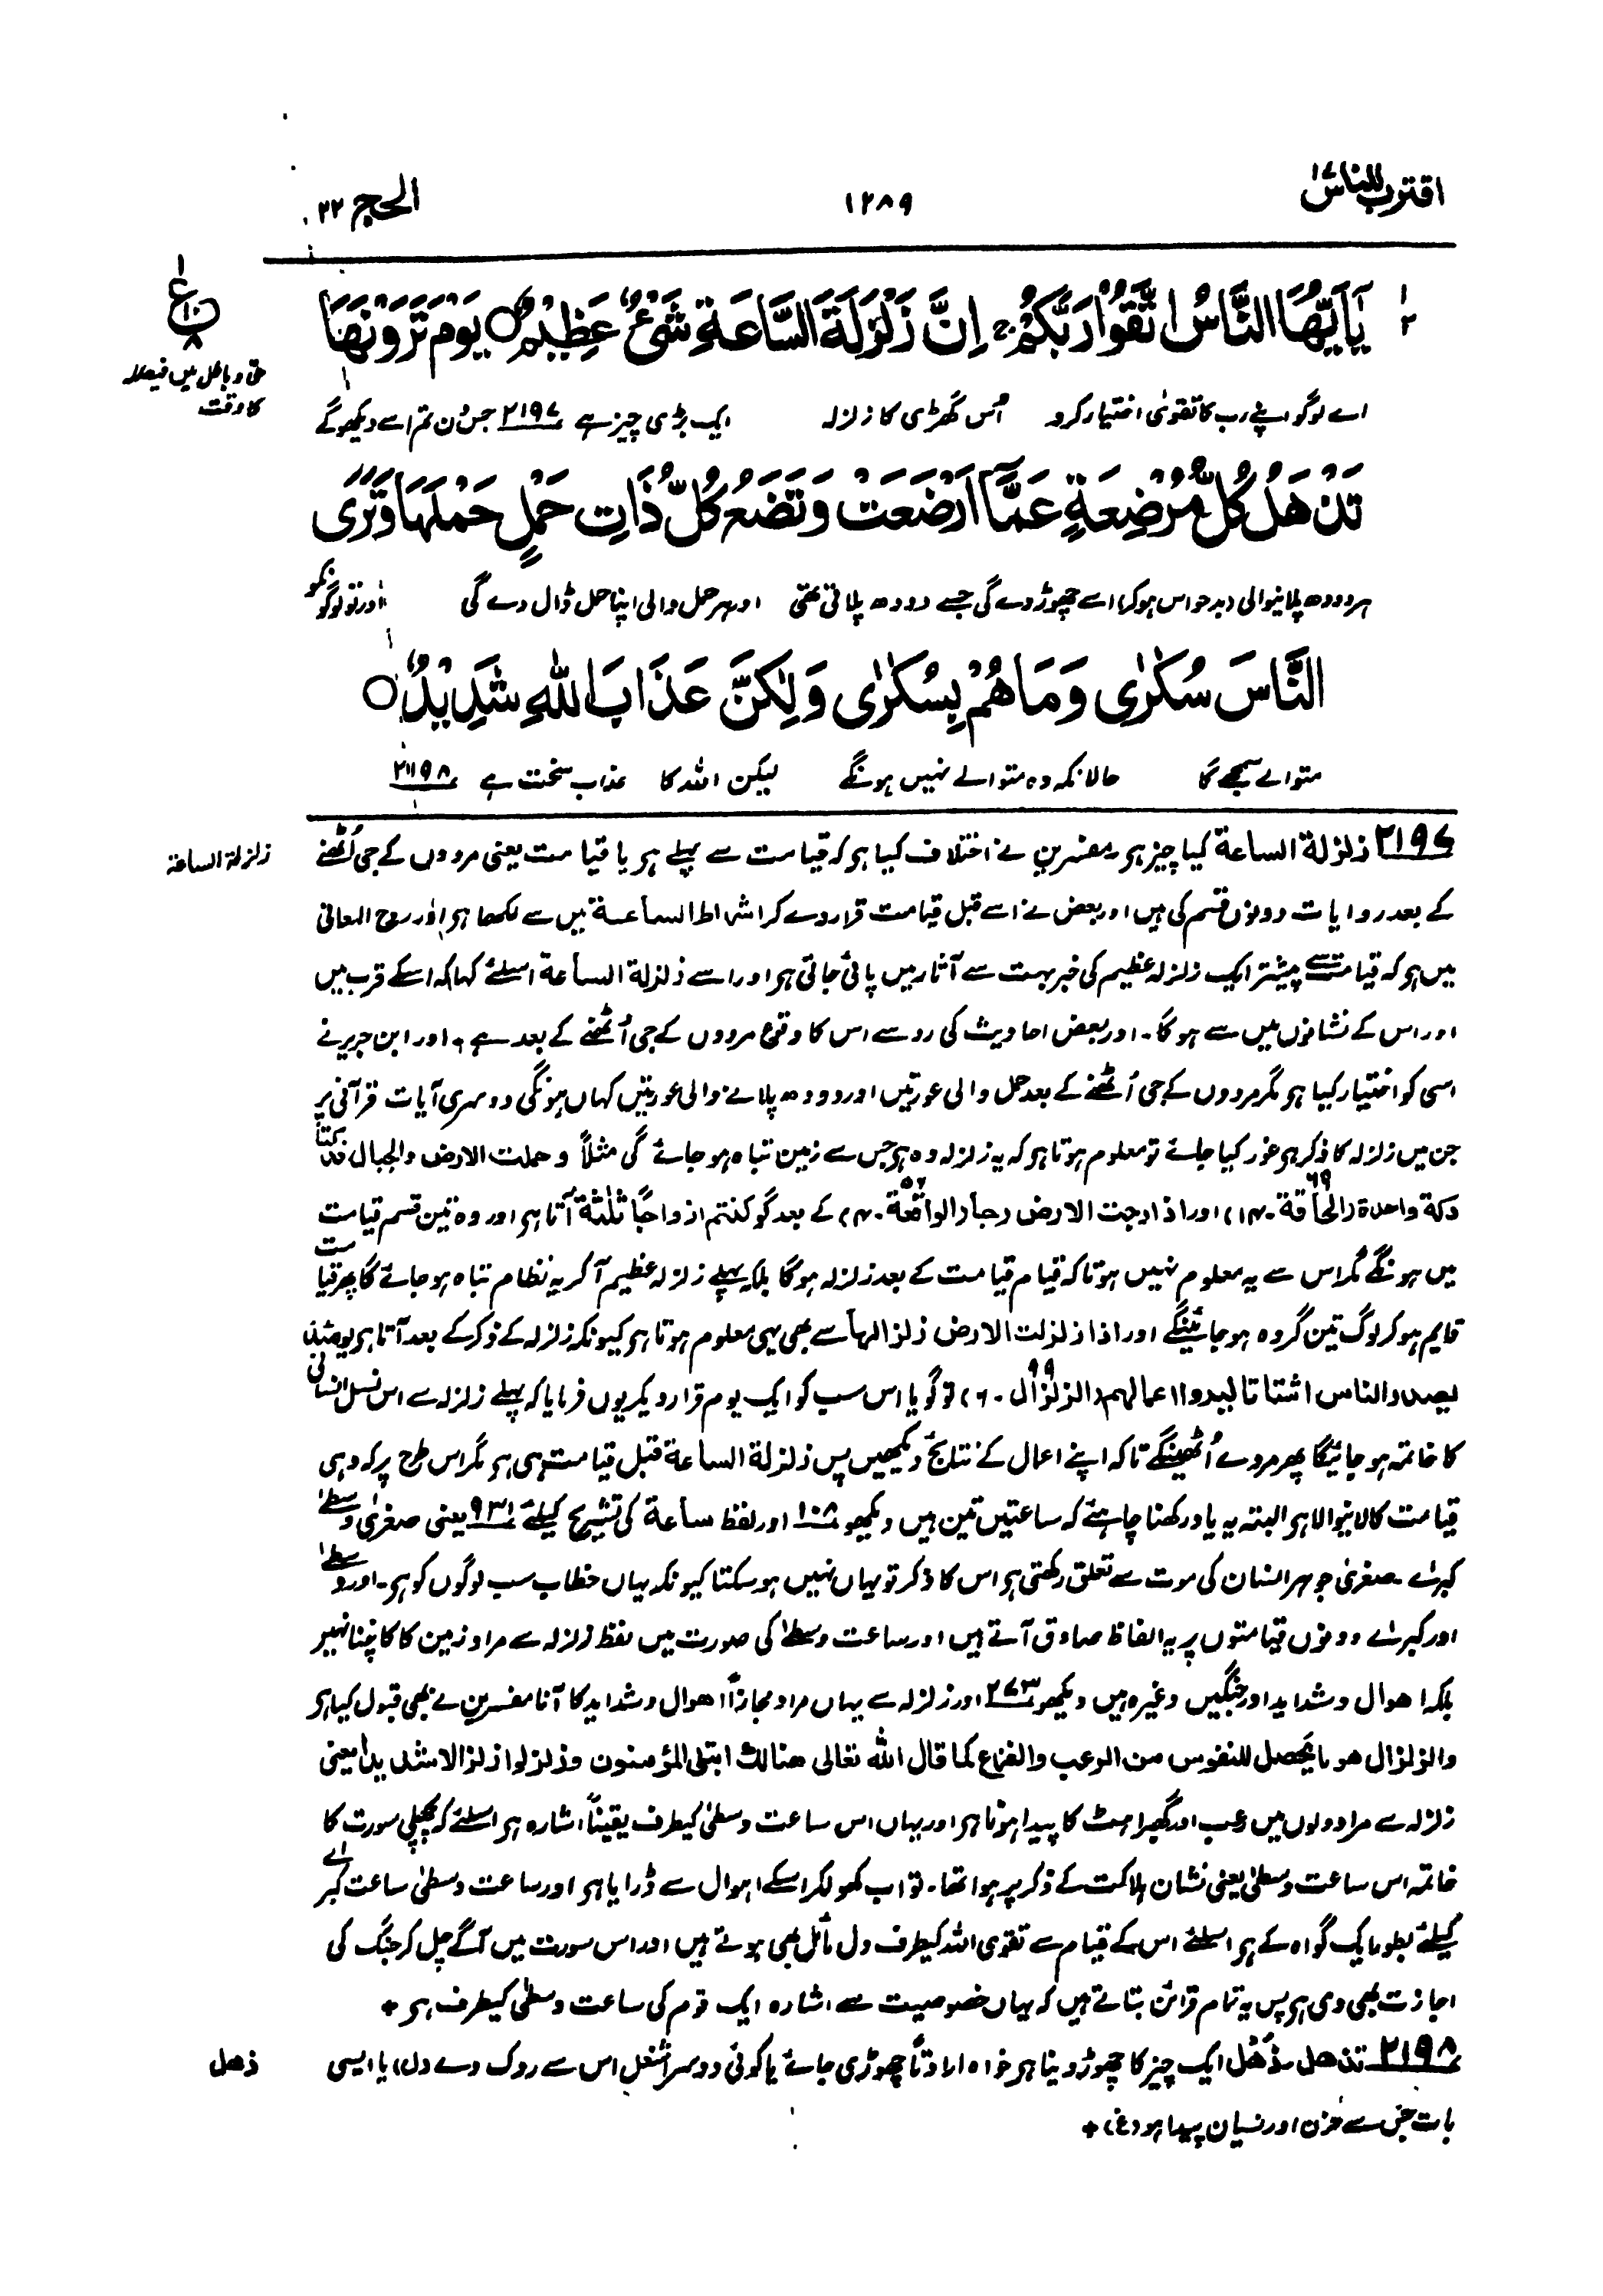 اقترب للناس ۱۷
۱۲۸۹
الحج ۲۲
یٰۤاَیُّهَا النَّاسُ اتَّقُوْا رَبَّكُمْ ۚ اِنَّ زَلْزَلَةَ السَّاعَةِ شَیْءٌ عَظِیْمٌ ○ یَوْمَ تَرَوْنَهَا
حق و باطل میں فیصلہ
کا وقت
اے لوگو اپنے رب کا تقویٰ اختیار کرو اُس گھڑی کا زلزلہ ایک بڑی چیز ہے ۲۱۹۷ جس دن تم اسے دیکھو گے
تَذْهَلُ كُلُّ مُرْضِعَةٍ عَمَّاۤ اَرْضَعَتْ وَتَضَعُ كُلُّ ذَاتِ حَمْلٍ حَمْلَهَا وَتَرَى
ہر دودھ پلانیوالی (بدحواس ہوکر) اسے چھوڑ دے گی جسے دودھ پلاتی تھی اور ہر حمل والی اپنا حمل ڈال دے گی اور تو لوگوں کو
النَّاسَ سُكٰرٰى وَمَا هُمْ بِسُكٰرٰى وَلٰكِنَّ عَذَابَ اللّٰهِ شَدِیْدٌ ○
متوالے سمجھے گا حالانکہ وہ متوالے نہیں ہونگے لیکن اللہ کا عذاب سخت ہے ۲۱۹۸
۲۱۹۷ زلزلة الساعة کیا چیز ہے۔ مفسرین نے اختلاف کیا ہے کہ قیامت سے پہلے ہے یا قیامت یعنی مردوں کے جی اُٹھنے
زلزلة الساعة
کے بعد روایات دونوں قسم کی ہیں اور بعض نے اسے قبل قیامت قرار دے کر اشراط الساعة میں سے لکھا ہے اور روح المعانی
میں ہے کہ قیامت سے پیشتر ایک زلزلہ عظیم کی خبر بہت سے آثار میں پائی جاتی ہے اور اسے زلزلة الساعة اسلئے کہا کہ اسکے قرب میں
اور اس کے نشانوں میں سے ہوگا۔ اور بعض احادیث کی رو سے اس کا وقوع مردوں کے جی اُٹھنے کے بعد ہے، اور ابن جریر نے
اسی کو اختیار کیا ہے مگر مردوں کے جی اُٹھنے کے بعد حمل والی عورتیں اور دودھ پلانے والی عورتیں کہاں ہونگی دوسری آیات قرآنی پر
جن میں زلزلہ کا ذکر ہے غور کیا جائے تو معلوم ہوتا ہے کہ یہ زلزلہ وہ ہے جس سے زمین تباہ ہو جائے گی مثلاً وحملت الارض والجبال فدکتا
دکة واحدة (الحاقة ۶۹۔۱۴) اور اذا رجت الارض رجا (الواقعة ۵۶۔۴) کے بعد گو کنتم ازواجاً ثلٰثة آتا ہے اور وہ تین قسم قیامت
میں ہونگے مگر اس سے یہ معلوم نہیں ہوتا کہ قیام قیامت کے بعد زلزلہ ہوگا بلکہ پہلے زلزلہ عظیم آکر یہ نظام تباہ ہو جائے گا پھر قیامت
قایم ہوکر لوگ تین گروہ ہو جائینگے اور اذا زلزلت الارض زلزالها سے بھی یہی معلوم ہوتا ہے کیونکہ زلزلہ کے ذکر کے بعد آتا ہے یومئذ
یصدر الناس اشتاتا لیروا اعمالهم (الزلزال ۹۹۔۶) تو گویا اس سب کو ایک یوم قرار دیکر یوں فرمایا کہ پہلے زلزلہ سے اس نسل انسانی
کا خاتمہ ہو جائیگا پھر مردے اُٹھینگے تاکہ اپنے اعمال کے نتائج دیکھیں پس زلزلة الساعة قبل قیامت ہی ہے مگر اس طرح پر کہ وہی
قیامت کا لانیوالا ہے البتہ یہ یاد رکھنا چاہئے کہ ساعتیں تین ہیں دیکھو ۱۰۸ اور لفظ ساعة کی تشریح کیلئے ۹۳۱ یعنی صغریٰ وسطےٰ
کبرےٰ۔ صغریٰ جو ہر انسان کی موت سے تعلق رکھتی ہے اس کا ذکر تو یہاں نہیں ہو سکتا کیونکہ یہاں خطاب سب لوگوں کو ہے۔ اور وسطےٰ
اور کبرےٰ دونوں قیامتوں پر یہ الفاظ صادق آتے ہیں اور ساعت وسطےٰ کی صورت میں لفظ زلزلہ سے مراد زمین کا کانپنا نہیں
بلکہ اهوال و شداید اور جنگیں وغیرہ ہیں دیکھو ۲۷۳ اور زلزلہ سے یہاں مراد مجازاً اهوال و شداید کا آنا مفسرین نے بھی قبول کیا ہے
والزلزال هو ما یحصل للنفوس من الرعب والفزع کما قال اللہ تعالی هنالك ابتلی المؤمنون وزلزلوا زلزالا شدیدا یعنی
زلزلہ سے مراد دلوں میں رعب اور گھبراہٹ کا پیدا ہونا ہے اور یہاں اس ساعت وسطیٰ کیطرف یقیناً اشارہ ہے اسلئے کہ پچھلی سورت کا
خاتمہ اس ساعت وسطیٰ یعنی نشان ہلاکت کے ذکر پر ہوا تھا۔ تو اب کھولکر اسکے اہوال سے ڈرایا ہے اور ساعت وسطیٰ ساعت کبرےٰ
کیلئے بطور ایک گواہ کے ہے اسلئے اس کے قیام سے تقوی اللہ کیطرف دل مائل بھی ہوتے ہیں اور اس سورت میں آگے چل کر جنگ کی
اجازت بھی دی ہے پس یہ تمام قرائن بتاتے ہیں کہ یہاں خصوصیت سے اشارہ ایک قوم کی ساعت وسطیٰ کیطرف ہے +
۲۱۹۸ تذهل۔ ذُهل ایک چیز کا چھوڑ دینا ہے خواہ ارادتاً چھوڑی جائے یا کوئی دوسرا شغل اس سے روک دے (ل) یا ایسی
ذهل
بات جس سے حزن اور نسیان پیدا ہو (غ) +